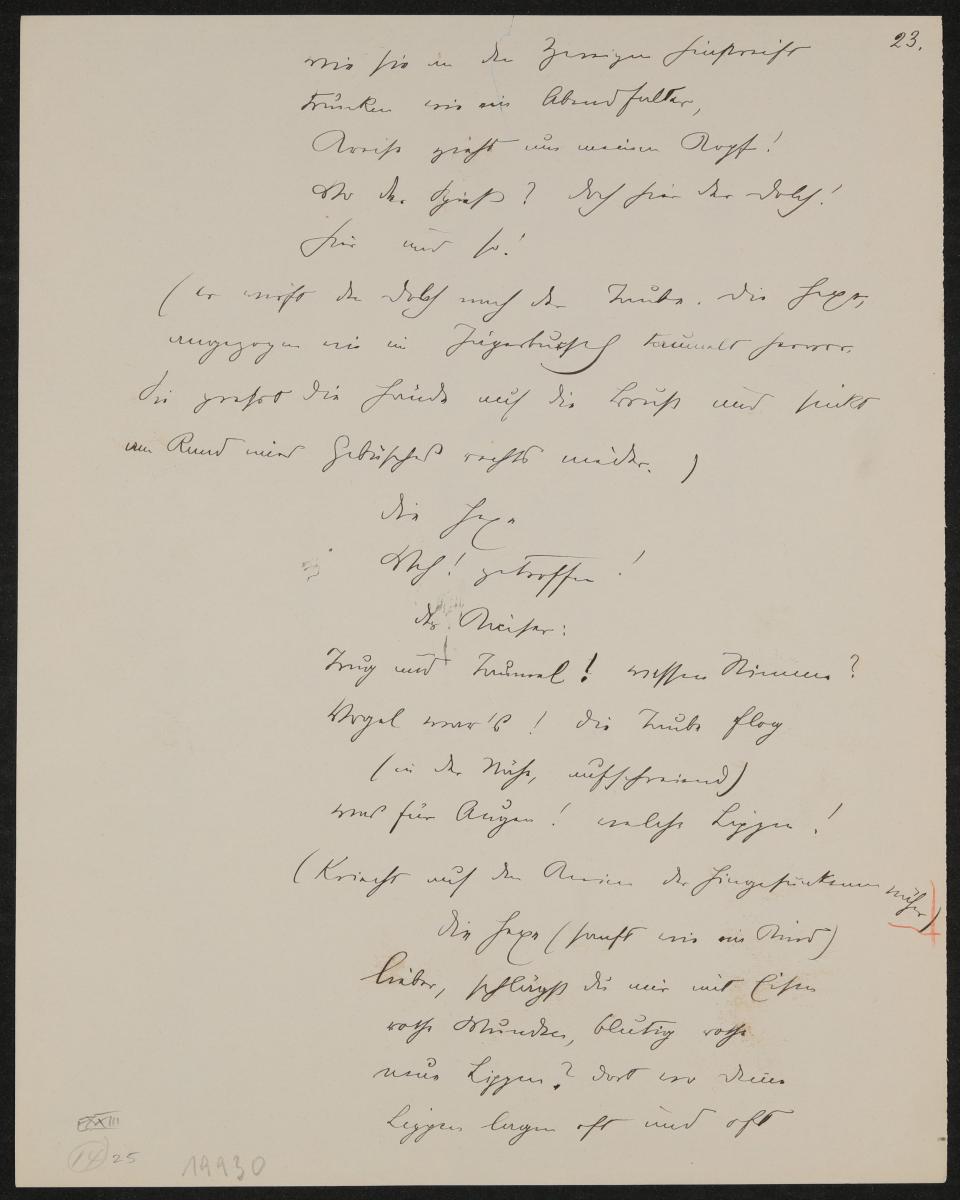 23.
wie sie in den Zweigen hinstreift
trunken wie ein Abendfalter,
Kreise zieht um meinen Kopf!
Wo der Spieß? doch hier der Dolch!
hier und so!
(er wirft den Dolch nach der Taube. Die Hexe,
angezogen wie ein Jägerbursch taumelt hervor.
Sie presst die Hände auf die Brust und sinkt
am Rand eines Gebüsches rechts nieder.)
Die Hexe
Weh! getroffen!
der Kaiser:
Trug und Taumel! wessen Stimme?
Vogel war's! die Taube flog
(in der Nähe, aufschreiend)
was für Augen! welche Lippen!
(Kriecht auf den Knien der Hingesunkenen näher)
Die Hexe (sanft wie ein Kind)
lieber, schlägst du mir mit Eisen
rothe Wunden, blutig rothe
neue Lippen? dort wo deine
Lippen lagen oft und oft
XXIII
14 25
19930